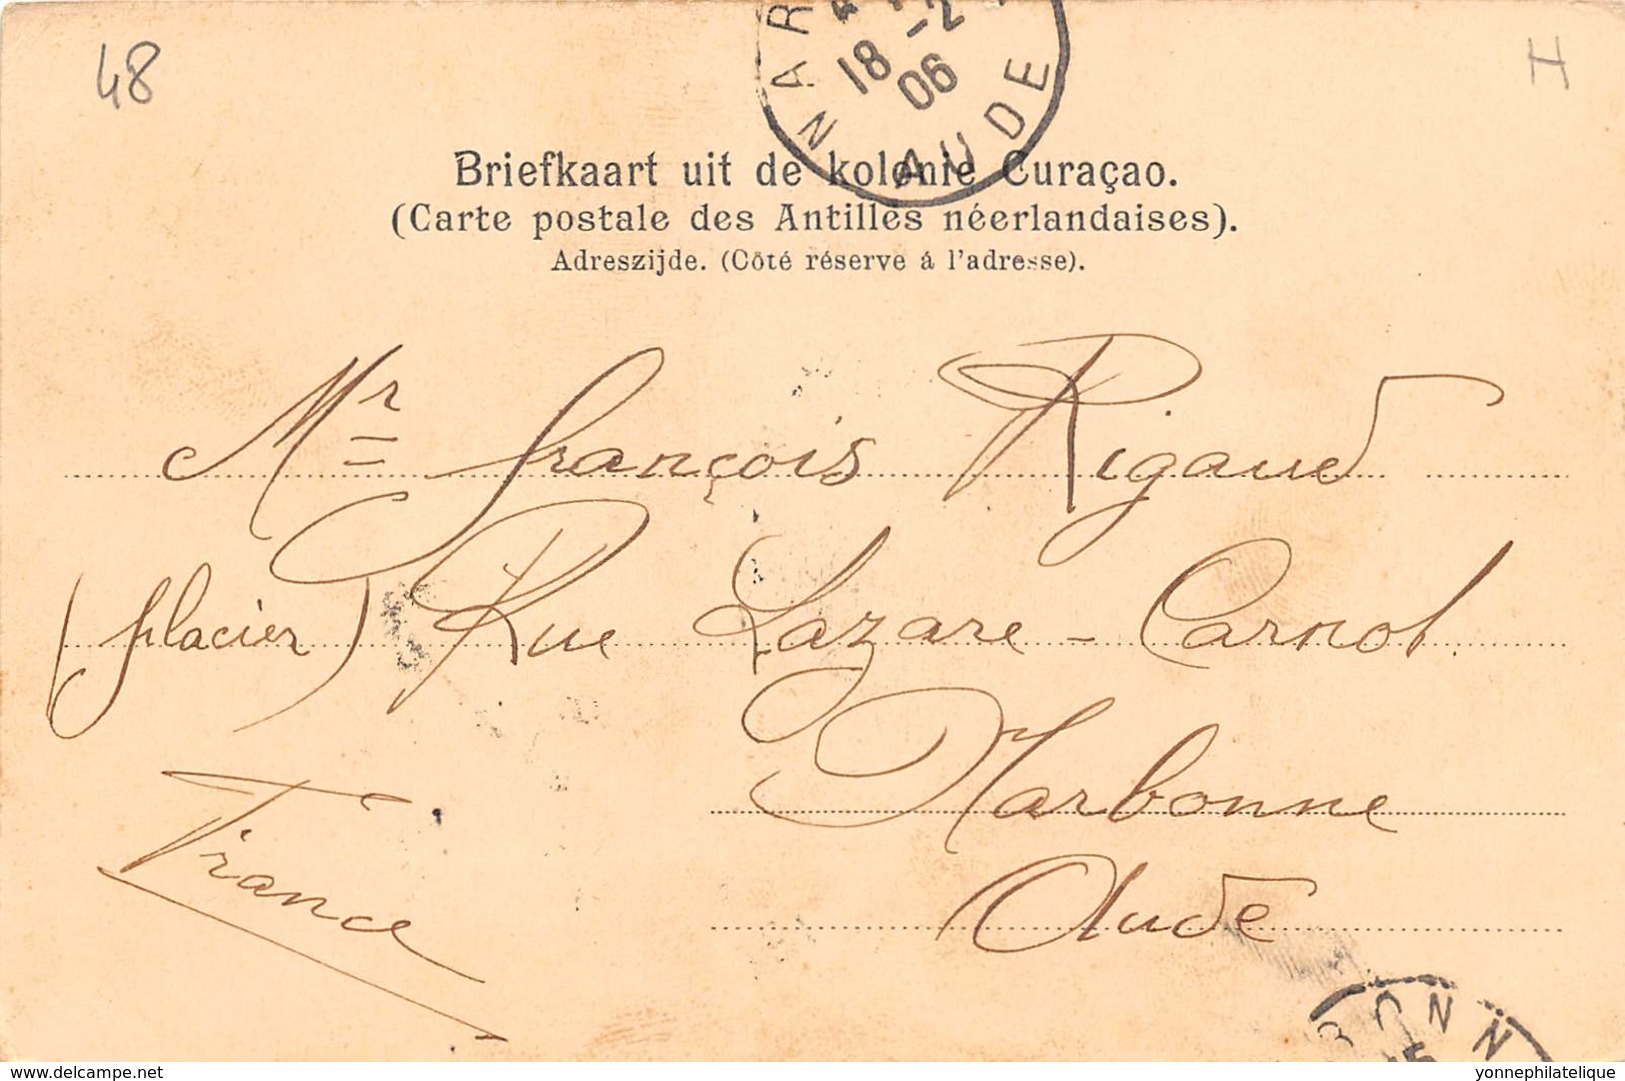 48
NAR
18 -2
06
AUDE
H
Briefkaart uit de kolonie Curaçao.
(Carte postale des Antilles néerlandaises).
Adreszijde. (Côté réserve á l'adresse).
Mr François Rigaud
(placier) Rue Lazare-Carnot
Narbonne
Aude
France
BONN
delcampe.net
yonnephilatelique